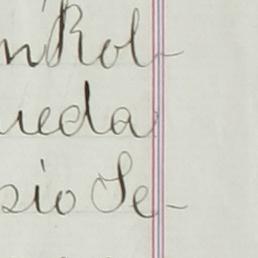 n Rol-
ueda
sio Se-